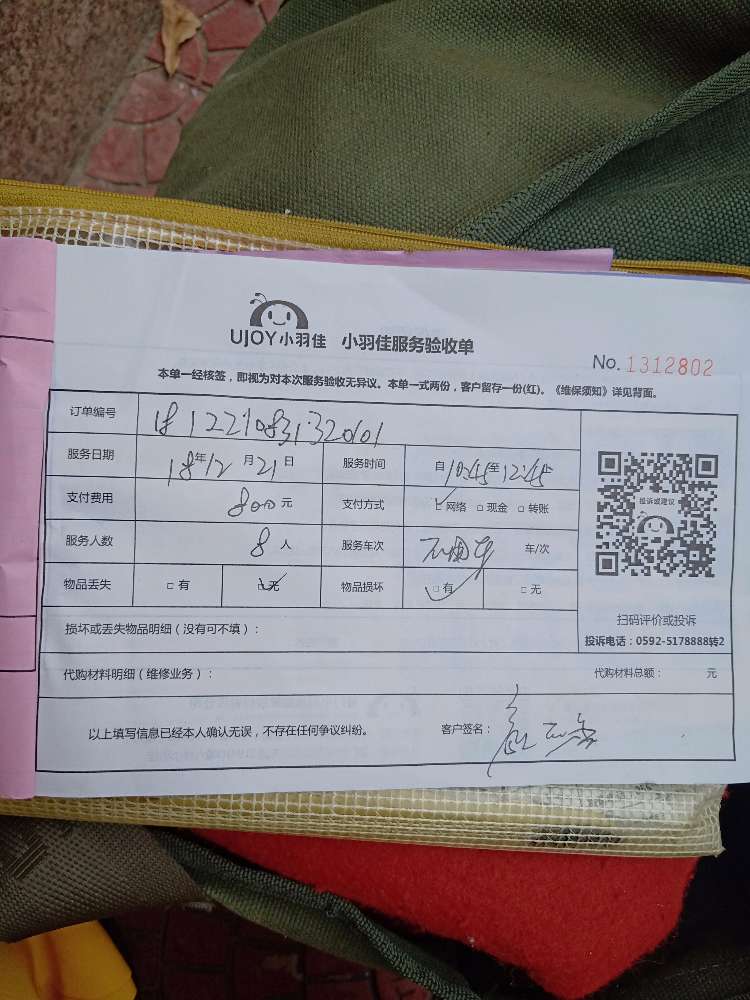 UJOY小羽佳 小羽佳服务验收单
No. 1312802
本单一经核签，即视为对本次服务验收无异议。本单一式两份，客户留存一份(红)。《维保须知》详见背面。
订单编号
服务日期 18年12月21日 服务时间 自10:45至12:45
支付费用 800元 支付方式 ☑网络 □现金 □转账
服务人数 8人 服务车次 车/次
物品丢失 □有 ☑无 物品损坏 ☑有 □无
投诉或建议
扫码评价或投诉
投诉电话：0592-5178888转2
损坏或丢失物品明细（没有可不填）：
代购材料明细（维修业务）： 代购材料总额： 元
以上填写信息已经本人确认无误，不存在任何争议纠纷。 客户签名：